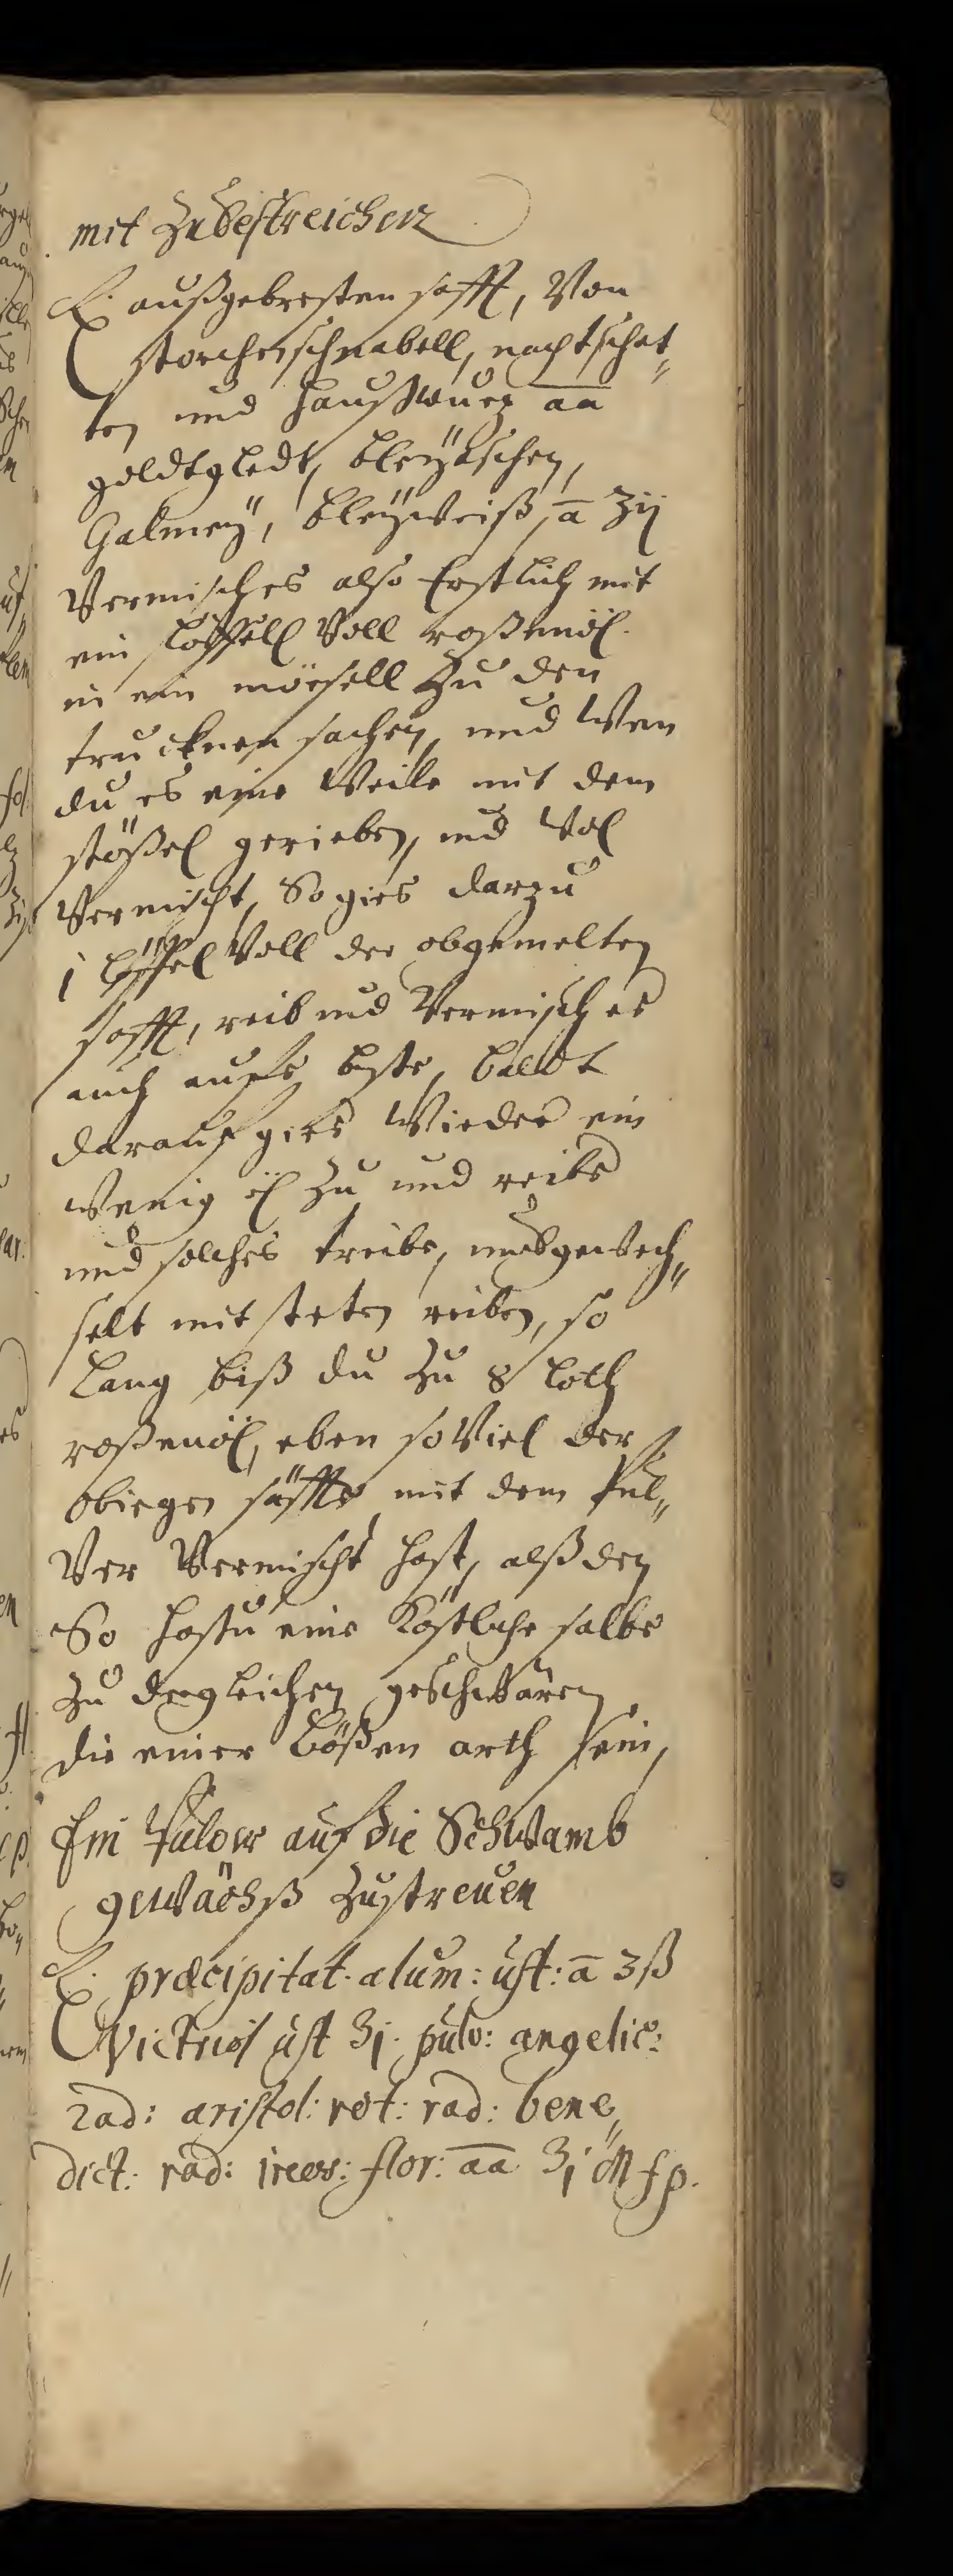 mit Zubestreichen
℞. außgebresten safft, Von
storchenschnabell, nachtschat„
ten und haußwurz āā
goldtgledt, bleÿaschen,
Galmeÿ, bleÿweiß, ā ʒij
Vermisches also Erstlich mit
ein löffell Voll roßenöl.
in ein mörsell Zu den
trucknen sachen, und Wen
du es eine Weile mit dem
stößel gerieben, und Wol
Vermischt, So gies darzu
1 löffel Voll der obgemelten
safft, reib und Vermisch es
auch aufs beste, baldt
darauf gies Wieder ein
Wenig öl Zu und reibe
und solches treibe, umbgewech„
selt mit steten reiben, so
Lang biß du Zu 8 loth
roßenöl, eben so Viel der
obiegen säffte mit dem Pul„
Ver Vermischt hast, alß den
So hastu eine Köstliche salbe
Zu dergleichen geschwären
die einer bößen arth sein,
Ein Pulver auf die Schwamb
gewächß Zustreuen
℞. præcipitat. alum: ust: ā ʒß
Victriol ust ʒj. pulv: angelic:
rad: aristol: rot: rad: bene„
dict: rad: ireos: flor: āā ʒj M f p.